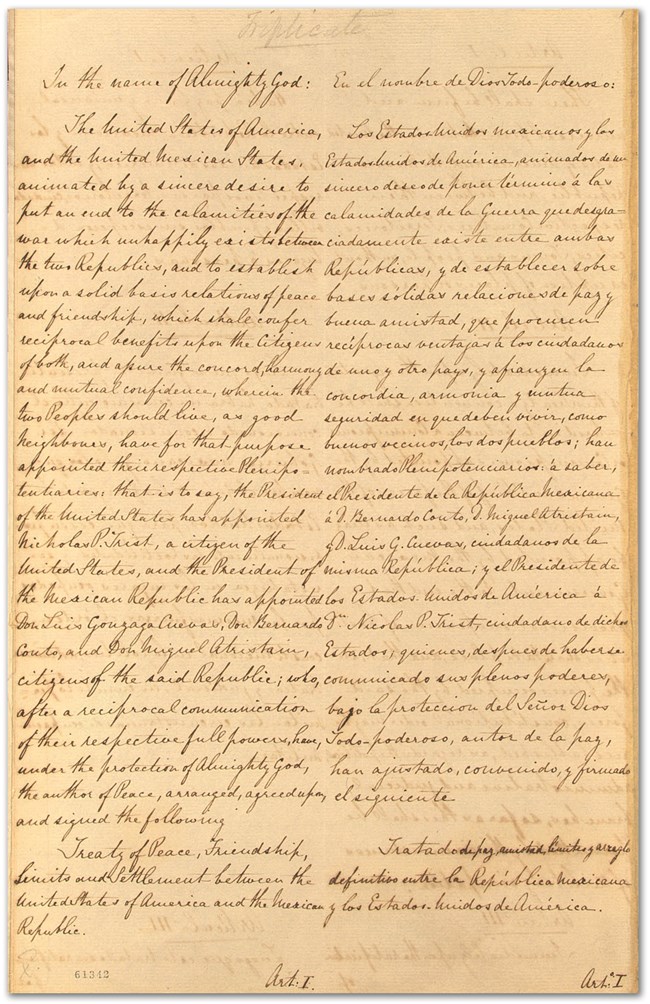 Triplicate.
In the name of Almighty God:
The United States of America,
and the United Mexican States,
animated by a sincere desire to
put an end to the calamities of the
war which unhappily exists between
the two Republics, and to establish
upon a solid basis relations of peace
and friendship, which shall confer
reciprocal benefits upon the Citizens
of both, and assure the concord, harmony
and mutual confidence, wherein the
two Peoples should live, as good
Neighbours, have for that purpose
appointed their respective Plenipo-
tentiaries: that is to say, the President
of the United States has appointed
Nicholas P. Trist, a citizen of the
United States, and the President of
the Mexican Republic has appointed
Don Luis Gonzaga Cuevas, Don Bernardo
Couto, and Don Miguel Atristain,
citizens of the said Republic; who,
after a reciprocal communication
of their respective full powers, have,
under the protection of Almighty God,
the author of Peace, arranged, agreed upon,
and signed the following
Treaty of Peace, Friendship,
Limits and Settlement between the
United States of America and the Mexican
Republic.
61342
Art: I.
En el nombre de Dios Todo-poderoso:
Los Estados Unidos mexicanos y los
Estados Unidos de América, animados de un
sincero deseo de poner término á las
calamidades de la Guerra que desgra-
ciadamente existe entre ambas
Repúblicas, y de establecer sobre
bases sólidas relaciones de paz y
buena amistad, que procuren
recíprocas ventajas á los ciudadanos
de uno y otro pays, y afianzen la
concordia, armonia y mutua
seguridad en que deben vivir, como
buenos vecinos, los dos pueblos; han
nombrado Plenipotenciarios: á saber,
el Presidente de la República Mexicana
á D. Bernardo Couto, D. Miguel Atristain,
y D. Luis G. Cuevas, ciudadanos de la
misma República; y el Presidente de
los Estados-Unidos de América á
Dn. Nicolas P. Trist, ciudadano de dichos
Estados; quienes, despues de haberse
comunicado sus plenos poderes,
bajo la proteccion del Señor Dios
Todo-poderoso, autor de la paz,
han ajustado, convenido, y firmado
el siguiente
Tratado de paz, amistad, límites y arreglo
definitivo entre la República Mexicana
y los Estados-Unidos de América.
Arto. I